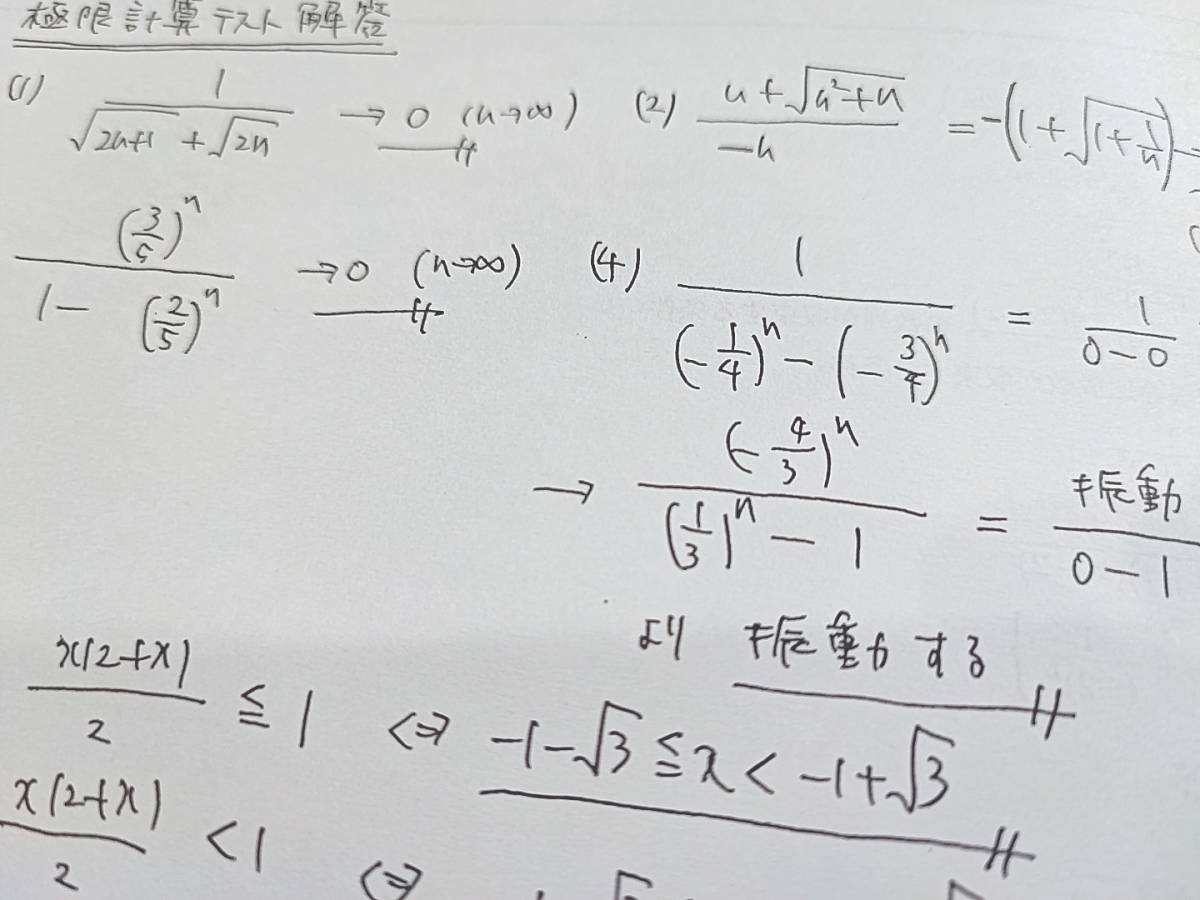 極限計算テスト 解答
(1) 1/(√(2n+1) + √(2n)) → 0 (n→∞) (2) (n+√(n²+n))/(-n) = -(1+√(1+1/n)) →
(3/5)^n/(1-(2/5)^n) → 0 (n→∞) (4) 1/((-1/4)^n - (-3/4)^n) = 1/(0-0)
→ (-4/3)^n/((1/3)^n - 1) = 振動/(0-1)
より 振動する
x(2+x)/2 ≦ 1 ⇔ -1-√3 ≦ x < -1+√3
x(2+x)/2 < 1 ⇔